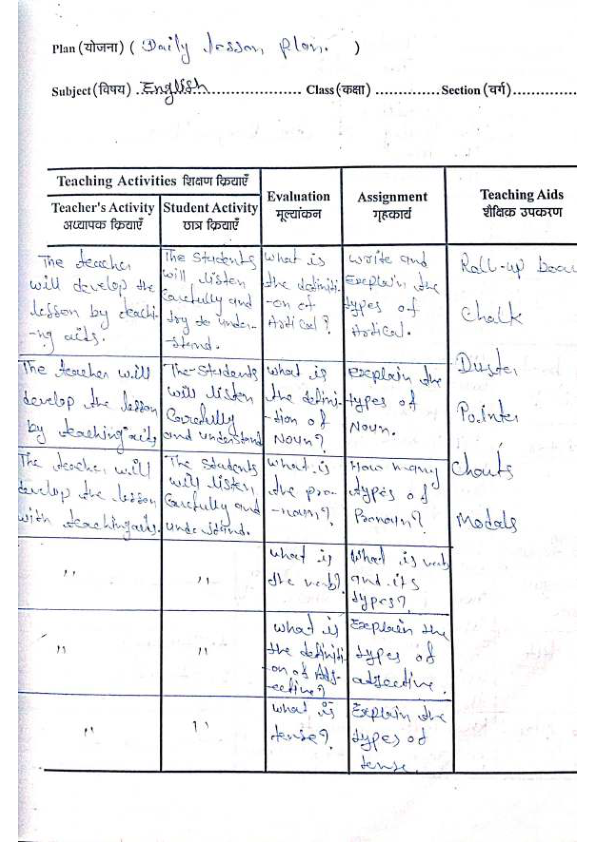 Plan (योजना) ( Daily lesson plan. )
Subject (विषय) . English .................... Class (कक्षा) .............. Section (वर्ग)..............
Teaching Activities शिक्षण क्रियाएँ
Teacher's Activity
अध्यापक क्रियाएँ
Student Activity
छात्र क्रियाएँ
Evaluation
मूल्यांकन
Assignment
गृहकार्य
Teaching Aids
शैक्षिक उपकरण
The teacher
will develop the
lesson by teachi-
-ng aids.
The Students
will listen
Carefully and
try to under-
-stand.
What is
the definiti-
-on of
Artical?
Write and
Explain the
types of
Artical.
Roll-up boar
Chalk
Duster
Pointer
Charts
Modals
The teacher will
develop the lesson
by teaching aids
The Students
will listen
Carefully
and understand
What is
the defini-
-tion of
Noun?
Explain the
types of
Noun.
The teacher will
develop the lesson
with teaching aids.
The Students
will listen
Carefully and
understand.
What is
the pro-
-noun?
How many
types of
Pronoun?
" "
What is
the verb?
What is verb
and its
types?
" "
What is
the definiti-
-on of Adj-
-ective?
Explain the
types of
adjective.
" "
What is
tense?
Explain the
types of
tense.